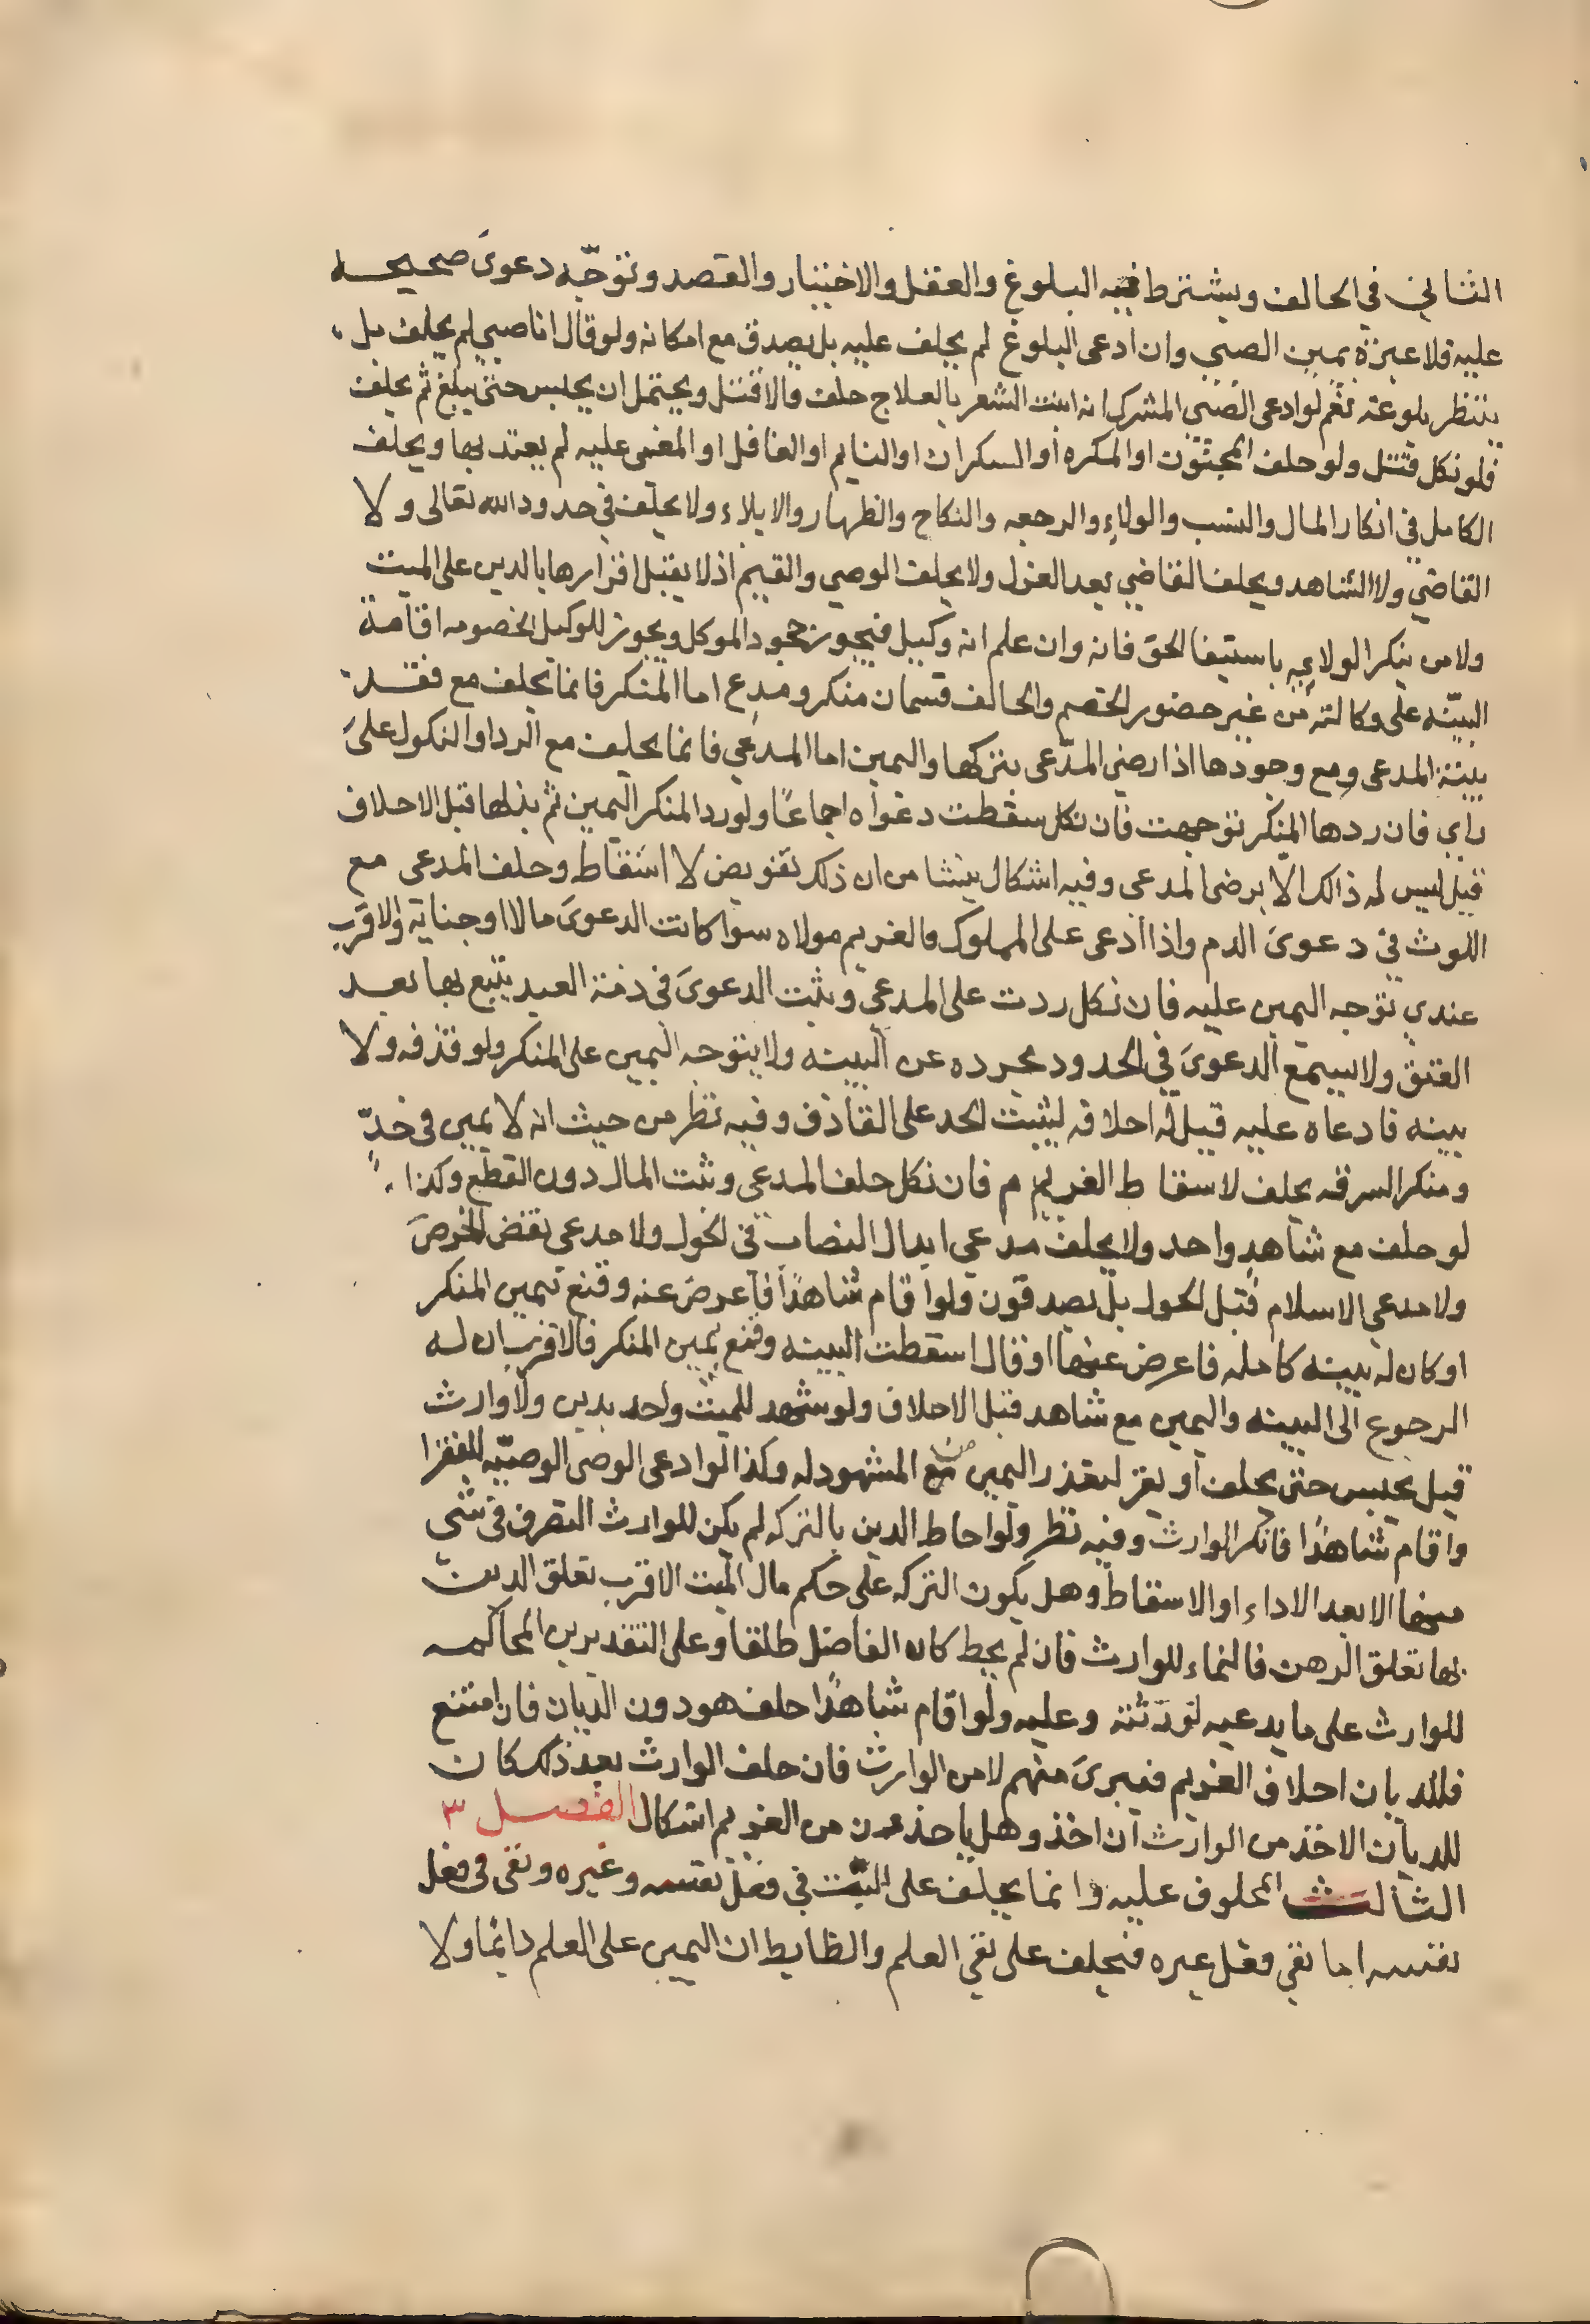 الثاني في الحالف ويشترط فيه البلوغ والعقل والاختيار والقصد وتوجّه دعوى صحيحه
عليه فلا عبرة بيمين الصبي وان ادعى البلوغ لم يحلف عليه بل يصدق مع امكانه ولو قال انا صبي لم يحلف بل
ينتظر بلوغه نعم لو ادعى الصبي المشرك انه انبت الشعر بالعلاج حلف والا قتل ويحتمل ان يحبس حتى يبلغ ثم يحلف
فلو نكل قتل ولو حلف المجنون او المكره او السكران او النايم او الغافل او المغمى عليه لم يعتد بها ويحلف
الكامل في انكار المال والنسب والولاء والرجعه والنكاح والظهار والايلاء ولا يحلف في حدود الله تعالى ولا
القاضي ولا الشاهد ويحلف القاضي بعد العزل ولا يحلف الوصي والقيم اذ لا يقبل اقرارها بالدين على الميت
ولا من ينكر الولايه باستيفا الحق فانه وان علم انه وكيل فيجوز جحود الموكل ويجوز للوكيل الخصومه اقامة
البيّنه على وكالته من غير حضور الخصم والحالف قسمان منكر ومدع اما المنكر فانما يحلف مع فقد
بينة المدعى ومع وجودها اذا رضي المدّعى بتركها واليمين اما المدعي فانما يحلف مع الرد او النكول على
راي فان ردها المنكر توجهت فان نكل سقطت دعواه اجماعًا ولو رد المنكر اليمين ثم بذلها قبل الاحلاف
قيل ليس له ذالك الا برضى المدعى وفيه اشكال ينشا من ان ذلك تفويض لا اسقاط وحلف المدعى مع
اللوث في دعوى الدم واذا ادعى على المملوك فالغريم مولاه سوا كانت الدعوى مالا او جناية والاقرب
عندي توجه اليمين عليه فان نكل ردت على المدعى ويثبت الدعوى في ذمة العبد يتبع بها بعد
العتق ولا يسمع الدعوى في الحدود مجرده عن البينه ولا يتوجه اليمين على المنكر ولو قذفه ولا
بينه فادعاه عليه قيل له احلافه ليثبت الحد على القاذف وفيه نظر من حيث انه لا يمين في حدّ
ومنكر السرقه يحلف لاسقاط الغريم م فان نكل حلف المدعى وثبت المال دون القطع وكذا
لو حلف مع شاهد واحد ولا يحلف مدعي ابدال النصاب في الحول ولا مدعى نقض الخرص
ولا مدعي الاسلام قبل الحول بل يصدقون ولو اقام شاهدًا فاعرض عنه وقنع بيمين المنكر
او كان له بينه كامله فاعرض عنها او قال اسقطت البينه وقنع بيمين المنكر فالاقرب ان له
الرجوع الى البينه واليمين مع شاهد قبل الاحلاف ولو شهد للميت واحد بدين ولا وارث
قيل يحبس حتى يحلف او يقر لتعذر اليمين من المشهود له وكذا لو ادعى الوصى الوصيّه للفقرا
واقام شاهدًا فانكر الوارث وفيه نظر ولو احاط الدين بالتركه لم يكن للوارث التصرف في شى
منها الا بعد الاداء او الاسقاط وهل يكون التركه على حكم مال الميت الاقرب تعلق الدين
بها تعلق الرهن فالنماء للوارث فان لم يحط كان الفاضل طلقا وعلى التقديرين المحاكمه
للوارث على ما يدعيه لمورثه وعليه ولو اقام شاهدًا حلف هو دون الديان فان امتنع
فللديان احلاف الغريم فيبرئ منهم لا من الوارث فان حلف الوارث بعد ذلك كان
للديان الاخذ من الوارث ان اخذ وهل ياخذون من الغريم اشكال الفصل ٣
الثالث المحلوف عليه وانما يحلف على البت في فعل نفسه وغيره ونفى في فعل
نفسه اما نفي فعل غيره فيحلف على نفي العلم والظابط ان اليمين على العلم دائما ولا